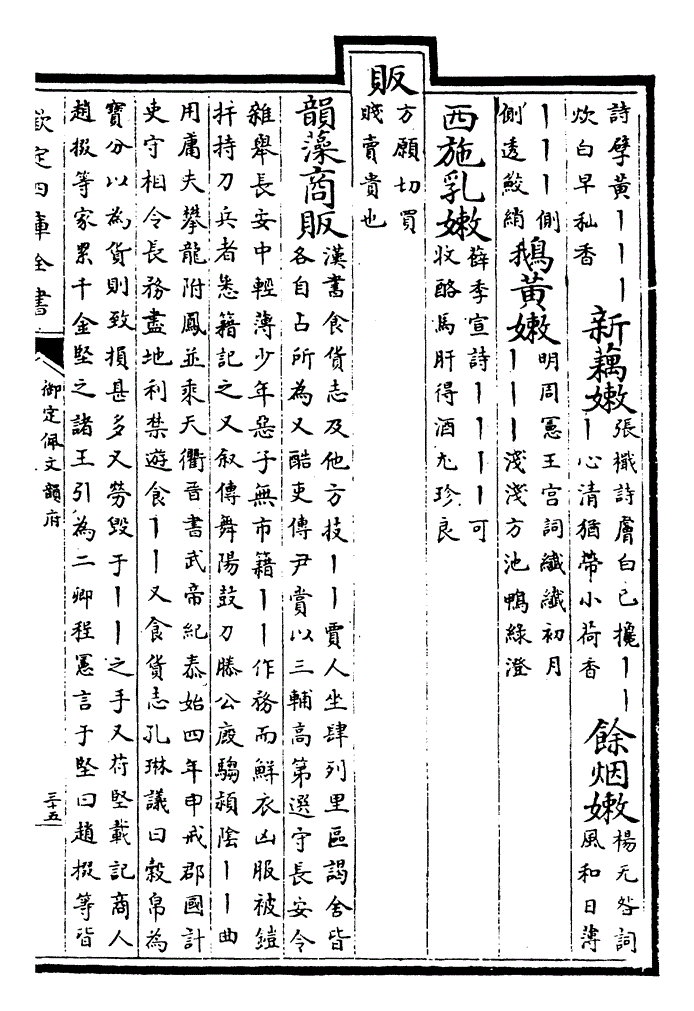 詩擘黃丨丨丨
炊白早秈香
新藕嫩
張檝詩膚白已攙丨丨
丨心清猶帶小荷香
餘烟嫩
楊无咎詞
風和日薄
丨丨丨側
側透鮫綃
鵝黃嫩
明周憲王宮詞纖纖初月
丨丨丨淺淺方池鴨綠澄
西施乳嫩
薛季宣詩丨丨丨丨可
牧酪馬肝得酒尢珍良
販
方願切買
賤賣貴也
韻藻商販
漢書食貨志及他方技丨丨賈人坐肆列里區謁舍皆
各自占所為又酷吏傳尹賞以三輔高第選守長安令
雜舉長安中輕薄少年惡子無市籍丨丨作務而鮮衣凶服被鎧
扞持刀兵者悉籍記之又叙傳舞陽鼓刀滕公廏騶潁陰丨丨曲
用庸夫攀龍附鳳並乘天衢晉書武帝紀泰始四年申戒郡國計
吏守相令長務盡地利禁遊食丨丨又食貨志孔琳議曰穀帛為
寶分以為貨則致損甚多又勞毀于丨丨之手又苻堅載記商人
趙掇等家累千金堅之諸王引為二卿程憲言于堅曰趙掇等皆
欽定四庫全書
御定佩文韻府
三十五